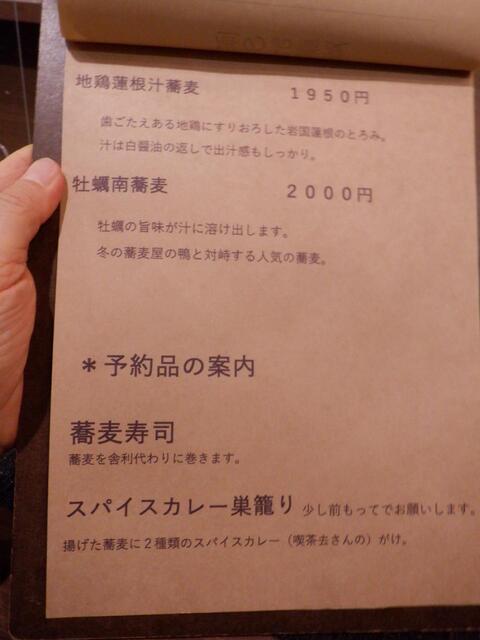 地鶏蓮根汁蕎麦 1950円
歯ごたえある地鶏にすりおろした岩国蓮根のとろみ。
汁は白醤油の返しで出汁感もしっかり。
牡蠣南蕎麦 2000円
牡蠣の旨味が汁に溶け出します。
冬の蕎麦屋の鴨と対峙する人気の蕎麦。
＊予約品の案内
蕎麦寿司
蕎麦を舎利代わりに巻きます。
スパイスカレー巣籠り 少し前もってでお願いします。
揚げた蕎麦に２種類のスパイスカレー（喫茶去さんの）がけ。